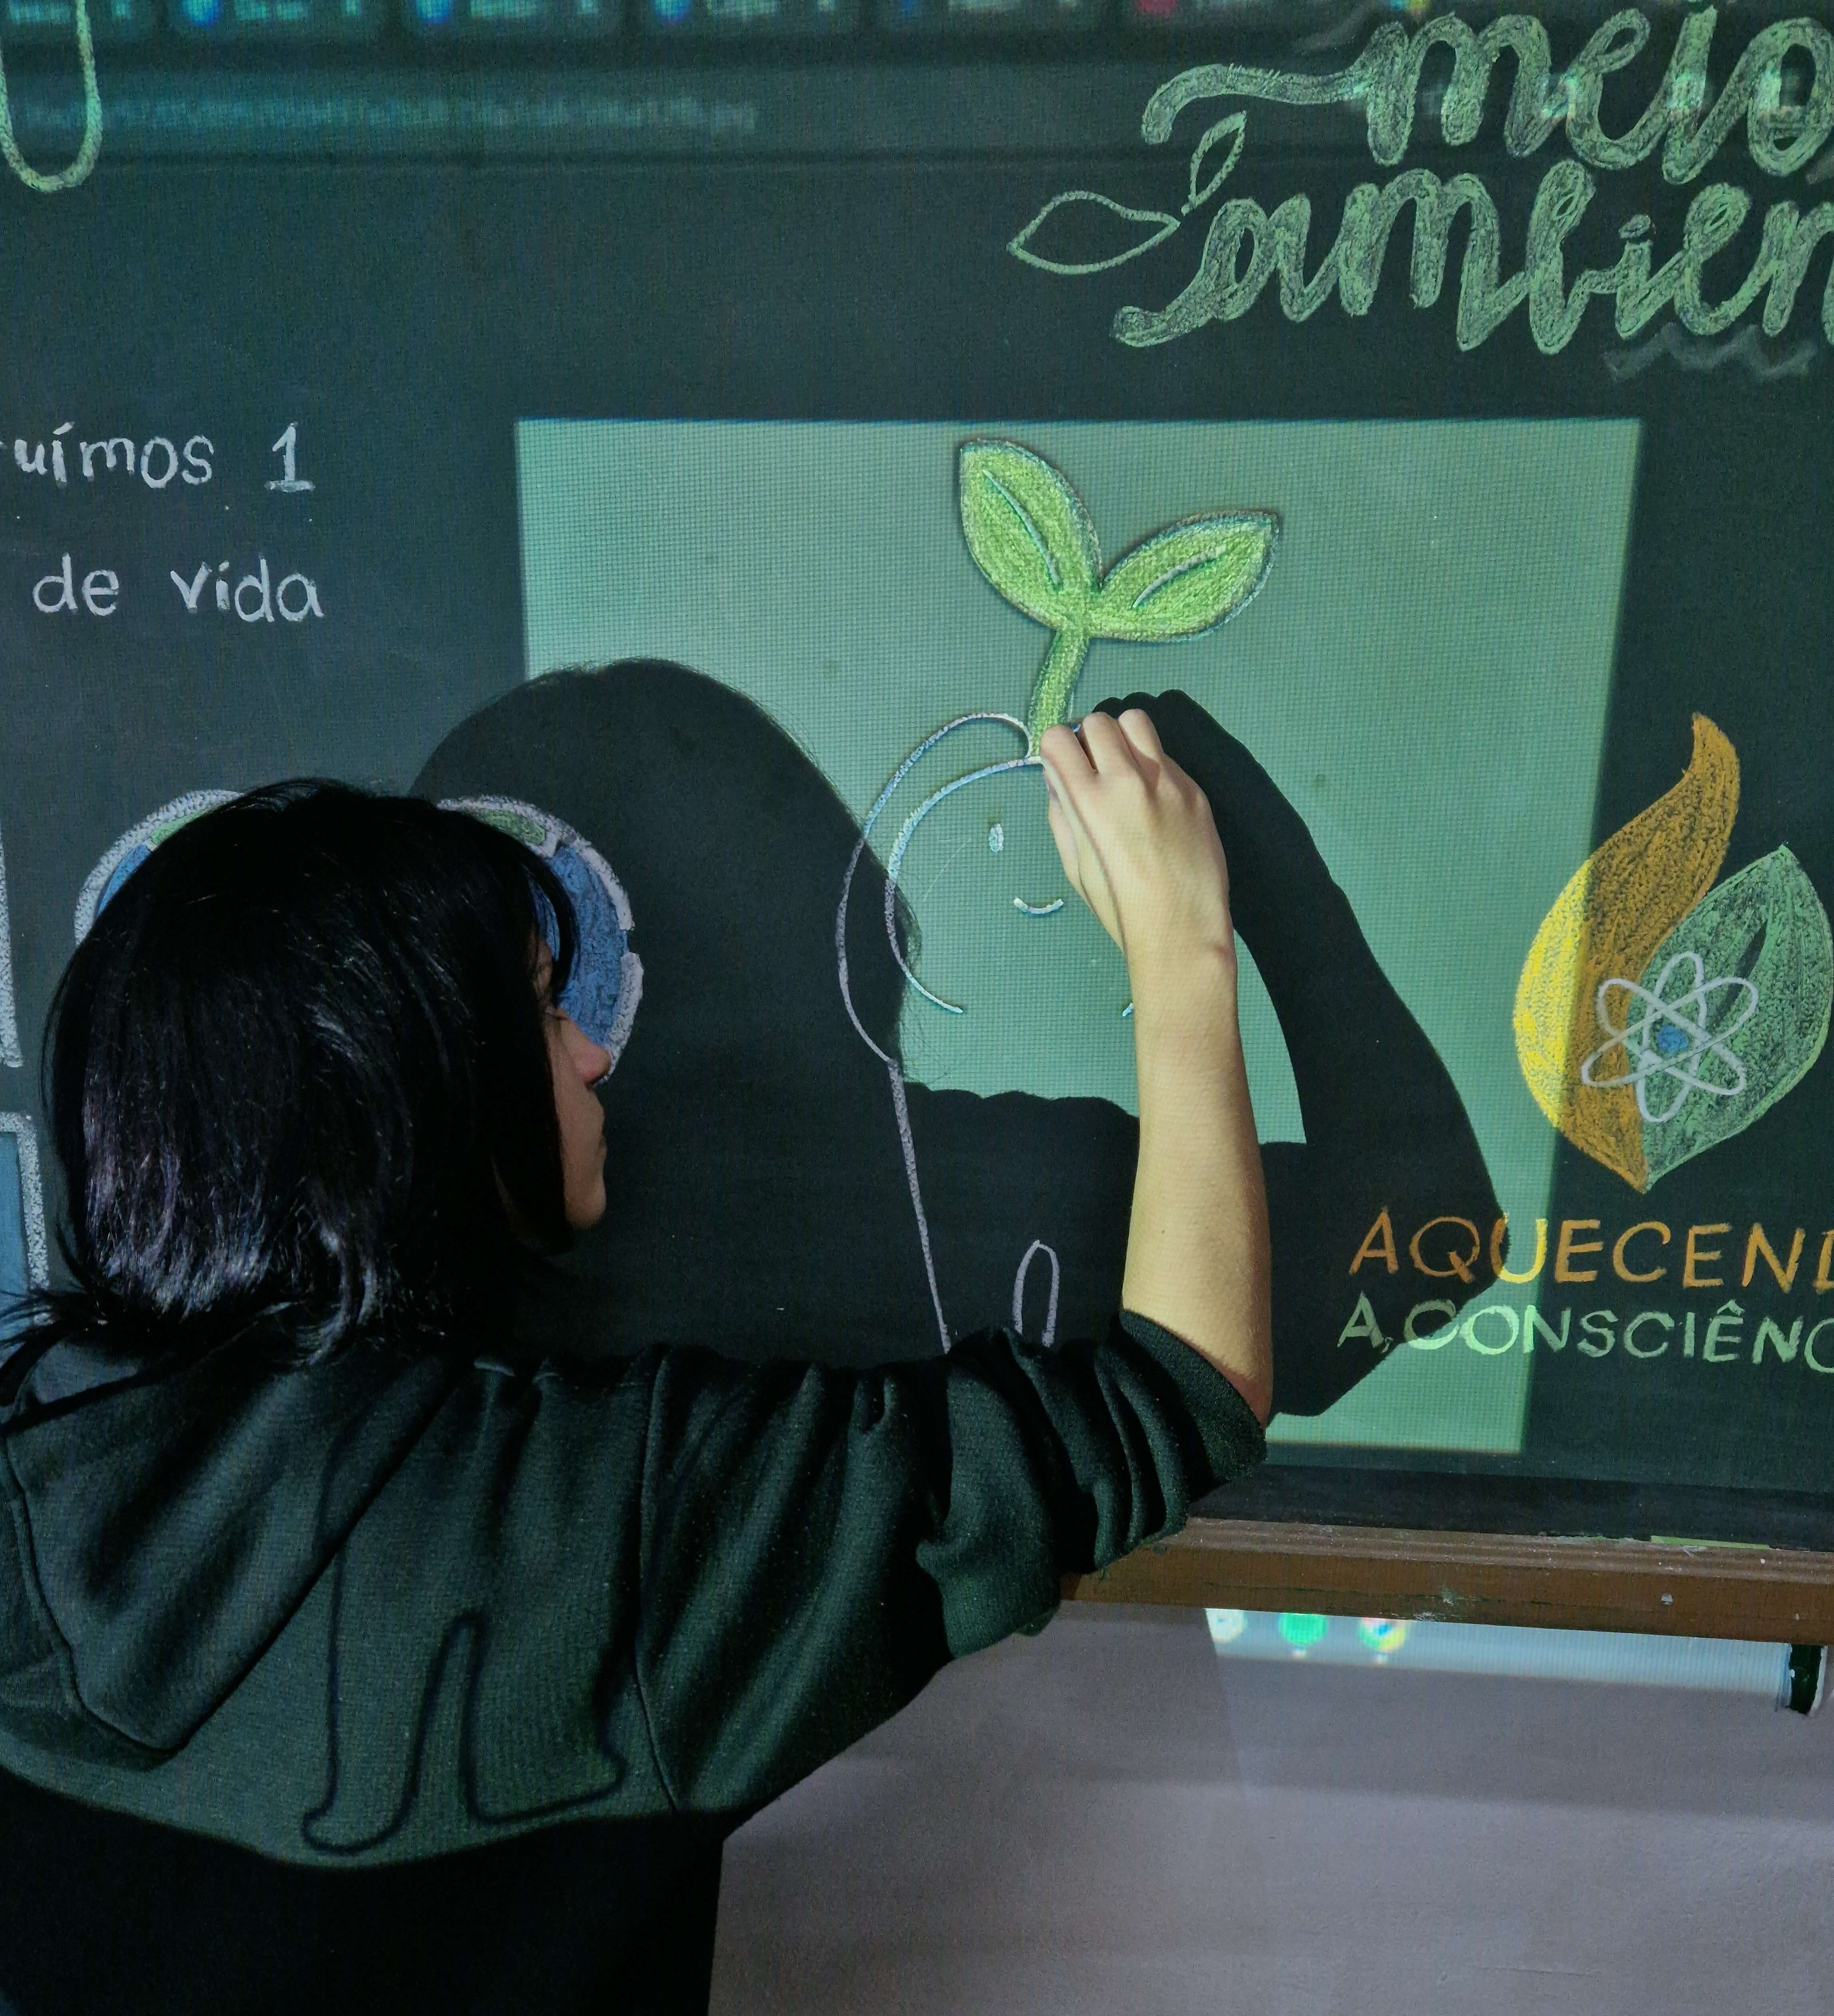 meio
ambien
uímos 1
de vida
AQUECEND
A CONSCIÊNC